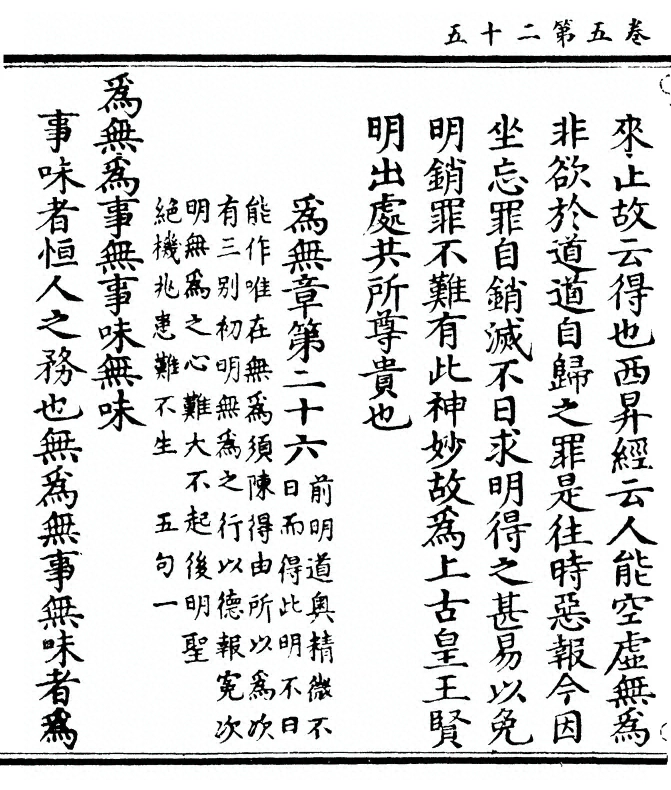 卷五第二十五
來止故云得也西昇經云人能空虛無爲
非欲於道道自歸之罪是往時惡報今因
坐忘罪自銷滅不日求明得之甚易以免
明銷罪不難有此神妙故爲上古皇王賢
明出處共所尊貴也
爲無章第二十六
前明道奥精微不
日而得此明不日
能作唯在無爲須陳得由所以爲次
有三别初明無爲之行以德報冤次
明無爲之心難大不起後明聖
絕機兆患難不生 五句一
爲無爲事無事味無味
事味者恒人之務也無爲無事無味者爲